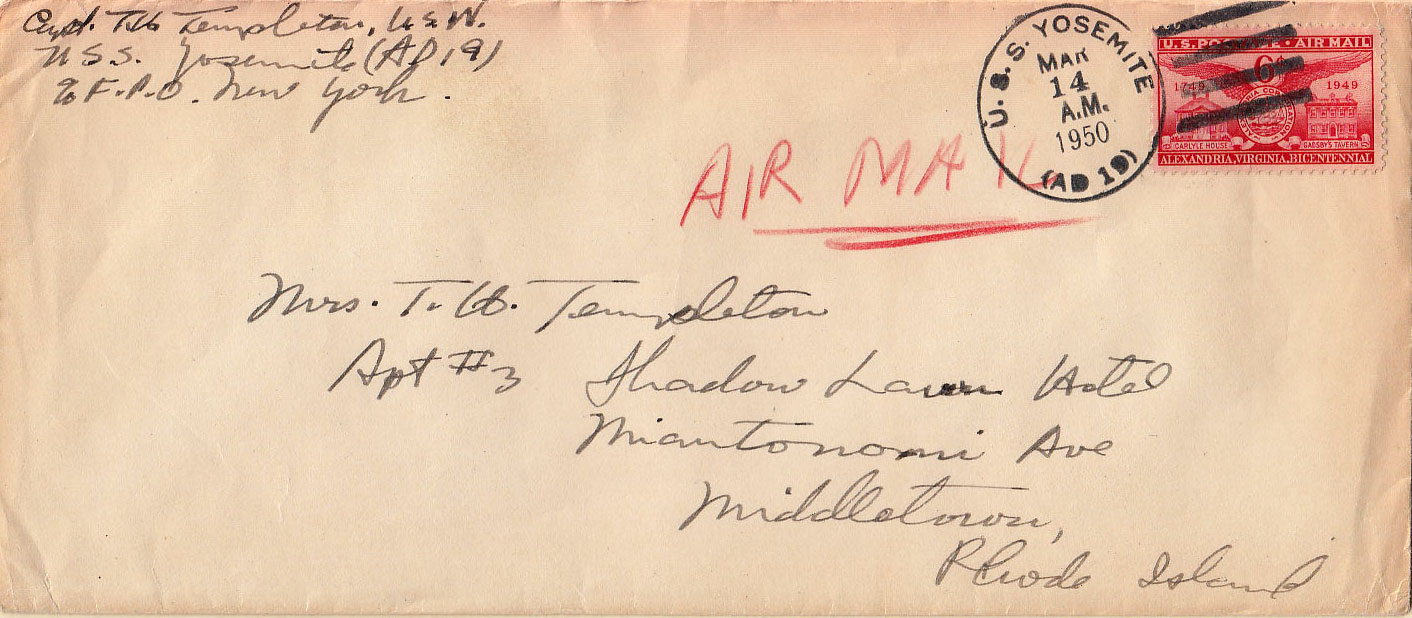 Capt. T.H. Templeton, U.S.N.
U.S.S. Yosemite (AD 19)
℅ F.P.O. New York.
U.S.S. YOSEMITE
MAR
14
A.M.
1950
(AD 19)
U.S. POSTAGE · AIR MAIL
6¢
1749 1949
ALEXANDRIA CORPORATION
CARLYLE HOUSE GADSBY'S TAVERN
ALEXANDRIA, VIRGINIA, BICENTENNIAL
AIR MAIL
Mrs. T. H. Templeton
Apt #3 Shadow Lawn Hotel
Miantonomi Ave
Middletown,
Rhode Island